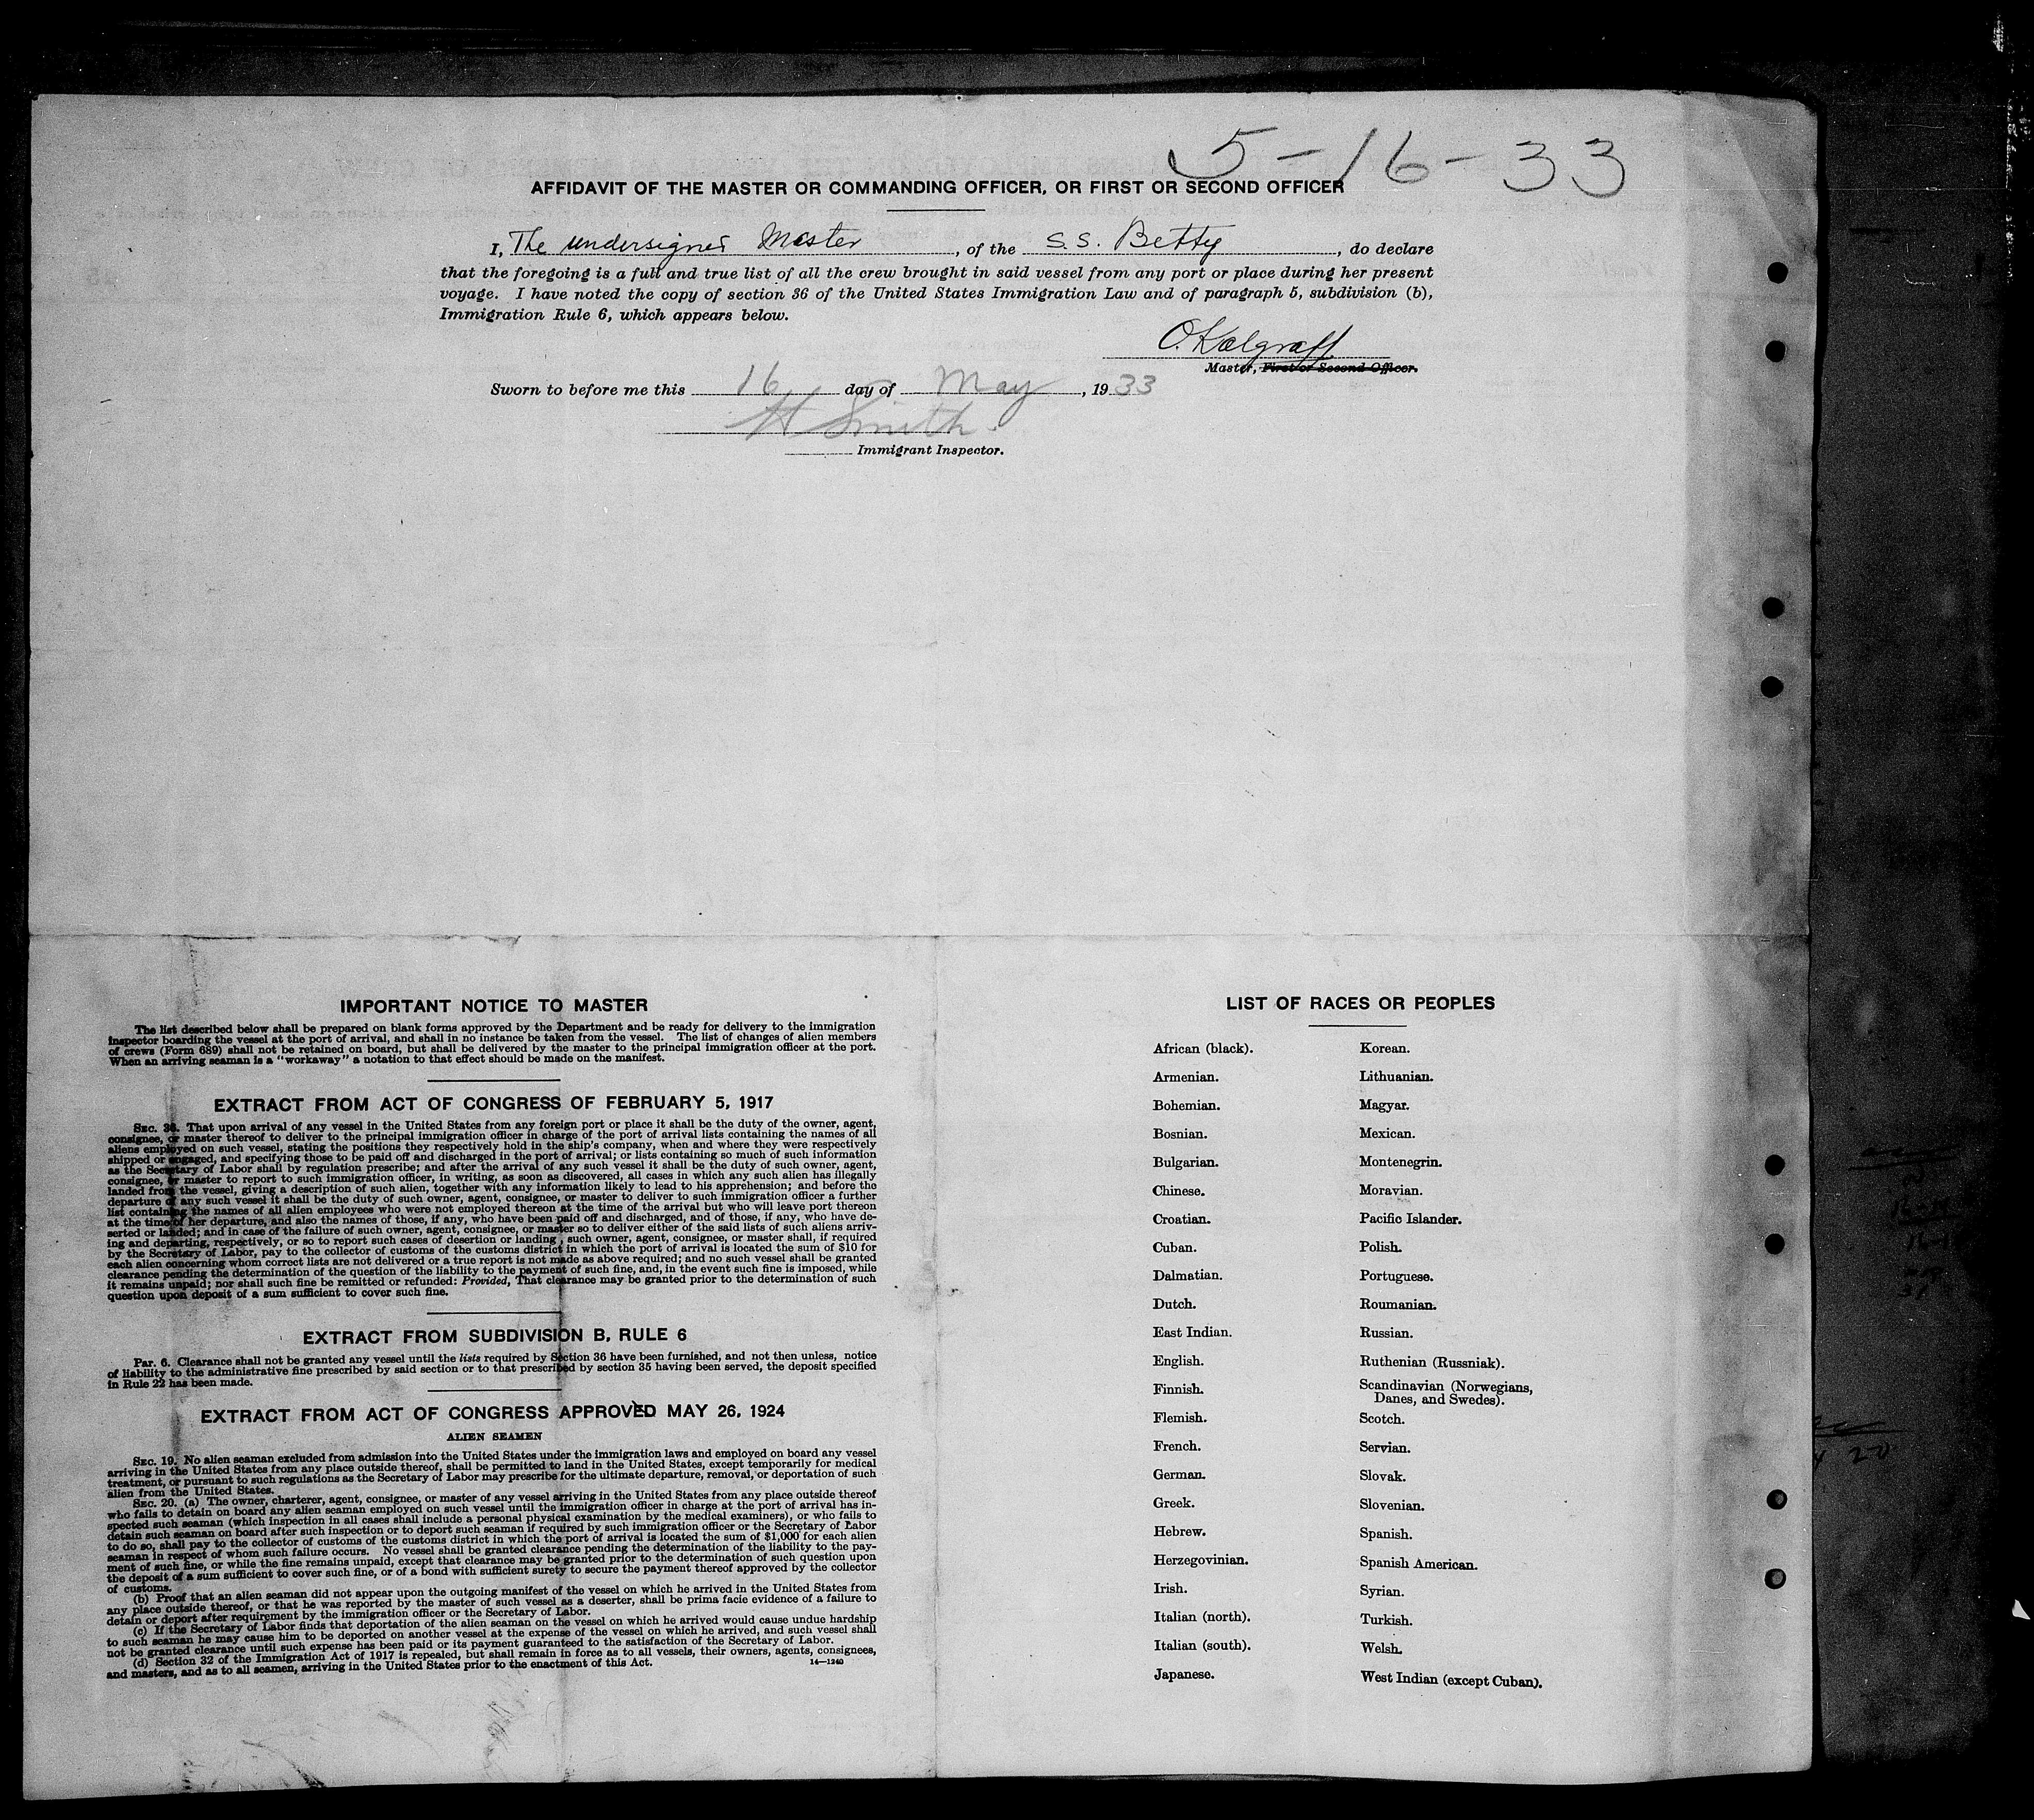 5-16-33
AFFIDAVIT OF THE MASTER OR COMMANDING OFFICER, OR FIRST OR SECOND OFFICER
I, The undersigned Master, of the S.S. Betty, do declare
that the foregoing is a full and true list of all the crew brought in said vessel from any port or place during her present
voyage. I have noted the copy of section 36 of the United States Immigration Law and of paragraph 5, subdivision (b),
Immigration Rule 6, which appears below.
O. Kalgraff
Master, First or Second Officer.
Sworn to before me this 16 day of May, 1933
H Smith.
Immigrant Inspector.
IMPORTANT NOTICE TO MASTER
The list described below shall be prepared on blank forms approved by the Department and be ready for delivery to the immigration
inspector boarding the vessel at the port of arrival, and shall in no instance be taken from the vessel. The list of changes of alien members
of crews (Form 689) shall not be retained on board, but shall be delivered by the master to the principal immigration officer at the port.
When an arriving seaman is a "workaway" a notation to that effect should be made on the manifest.
EXTRACT FROM ACT OF CONGRESS OF FEBRUARY 5, 1917
SEC. 36. That upon arrival of any vessel in the United States from any foreign port or place it shall be the duty of the owner, agent,
consignee, or master thereof to deliver to the principal immigration officer in charge of the port of arrival lists containing the names of all
aliens employed on such vessel, stating the positions they respectively hold in the ship's company, when and where they were respectively
shipped or engaged, and specifying those to be paid off and discharged in the port of arrival; or lists containing so much of such information
as the Secretary of Labor shall by regulation prescribe; and after the arrival of any such vessel it shall be the duty of such owner, agent,
consignee, or master to report to such immigration officer, in writing, as soon as discovered, all cases in which any such alien has illegally
landed from the vessel, giving a description of such alien, together with any information likely to lead to his apprehension; and before the
departure of any such vessel it shall be the duty of such owner, agent, consignee, or master to deliver to such immigration officer a further
list containing the names of all alien employees who were not employed thereon at the time of the arrival but who will leave port thereon
at the time of her departure, and also the names of those, if any, who have been paid off and discharged, and of those, if any, who have de-
serted or landed; and in case of the failure of such owner, agent, consignee, or master so to deliver either of the said lists of such aliens arriv-
ing and departing, respectively, or so to report such cases of desertion or landing, such owner, agent, consignee, or master shall, if required
by the Secretary of Labor, pay to the collector of customs of the customs district in which the port of arrival is located the sum of $10 for
each alien concerning whom correct lists are not delivered or a true report is not made as above required; and no such vessel shall be granted
clearance pending the determination of the question of the liability to the payment of such fine, and, in the event such fine is imposed, while
it remains unpaid; nor shall such fine be remitted or refunded: Provided, That clearance may be granted prior to the determination of such
question upon deposit of a sum sufficient to cover such fine.
EXTRACT FROM SUBDIVISION B, RULE 6
Par. 6. Clearance shall not be granted any vessel until the lists required by Section 36 have been furnished, and not then unless, notice
of liability to the administrative fine prescribed by said section or to that prescribed by section 35 having been served, the deposit specified
in Rule 22 has been made.
EXTRACT FROM ACT OF CONGRESS APPROVED MAY 26, 1924
ALIEN SEAMEN
SEC. 19. No alien seaman excluded from admission into the United States under the immigration laws and employed on board any vessel
arriving in the United States from any place outside thereof, shall be permitted to land in the United States, except temporarily for medical
treatment, or pursuant to such regulations as the Secretary of Labor may prescribe for the ultimate departure, removal, or deportation of such
alien from the United States.
SEC. 20. (a) The owner, charterer, agent, consignee, or master of any vessel arriving in the United States from any place outside thereof
who fails to detain on board any alien seaman employed on such vessel until the immigration officer in charge at the port of arrival has in-
spected such seaman (which inspection in all cases shall include a personal physical examination by the medical examiners), or who fails to
detain such seaman on board after such inspection or to deport such seaman if required by such immigration officer or the Secretary of Labor
to do so, shall pay to the collector of customs of the customs district in which the port of arrival is located the sum of $1,000 for each alien
seaman in respect of whom such failure occurs. No vessel shall be granted clearance pending the determination of the liability to the pay-
ment of such fine, or while the fine remains unpaid, except that clearance may be granted prior to the determination of such question upon
the deposit of a sum sufficient to cover such fine, or of a bond with sufficient surety to secure the payment thereof approved by the collector
of customs.
(b) Proof that an alien seaman did not appear upon the outgoing manifest of the vessel on which he arrived in the United States from
any place outside thereof, or that he was reported by the master of such vessel as a deserter, shall be prima facie evidence of a failure to
detain or deport after requirement by the immigration officer or the Secretary of Labor.
(c) If the Secretary of Labor finds that deportation of the alien seaman on the vessel on which he arrived would cause undue hardship
to such seaman he may cause him to be deported on another vessel at the expense of the vessel on which he arrived, and such vessel shall
not be granted clearance until such expense has been paid or its payment guaranteed to the satisfaction of the Secretary of Labor.
(d) Section 32 of the Immigration Act of 1917 is repealed, but shall remain in force as to all vessels, their owners, agents, consignees,
and masters, and as to all seamen, arriving in the United States prior to the enactment of this Act.
14—1240
LIST OF RACES OR PEOPLES
African (black).
Armenian.
Bohemian.
Bosnian.
Bulgarian.
Chinese.
Croatian.
Cuban.
Dalmatian.
Dutch.
East Indian.
English.
Finnish.
Flemish.
French.
German.
Greek.
Hebrew.
Herzegovinian.
Irish.
Italian (north).
Italian (south).
Japanese.
Korean.
Lithuanian.
Magyar.
Mexican.
Montenegrin.
Moravian.
Pacific Islander.
Polish.
Portuguese.
Roumanian.
Russian.
Ruthenian (Russniak).
Scandinavian (Norwegians,
Danes, and Swedes).
Scotch.
Servian.
Slovak.
Slovenian.
Spanish.
Spanish American.
Syrian.
Turkish.
Welsh.
West Indian (except Cuban).